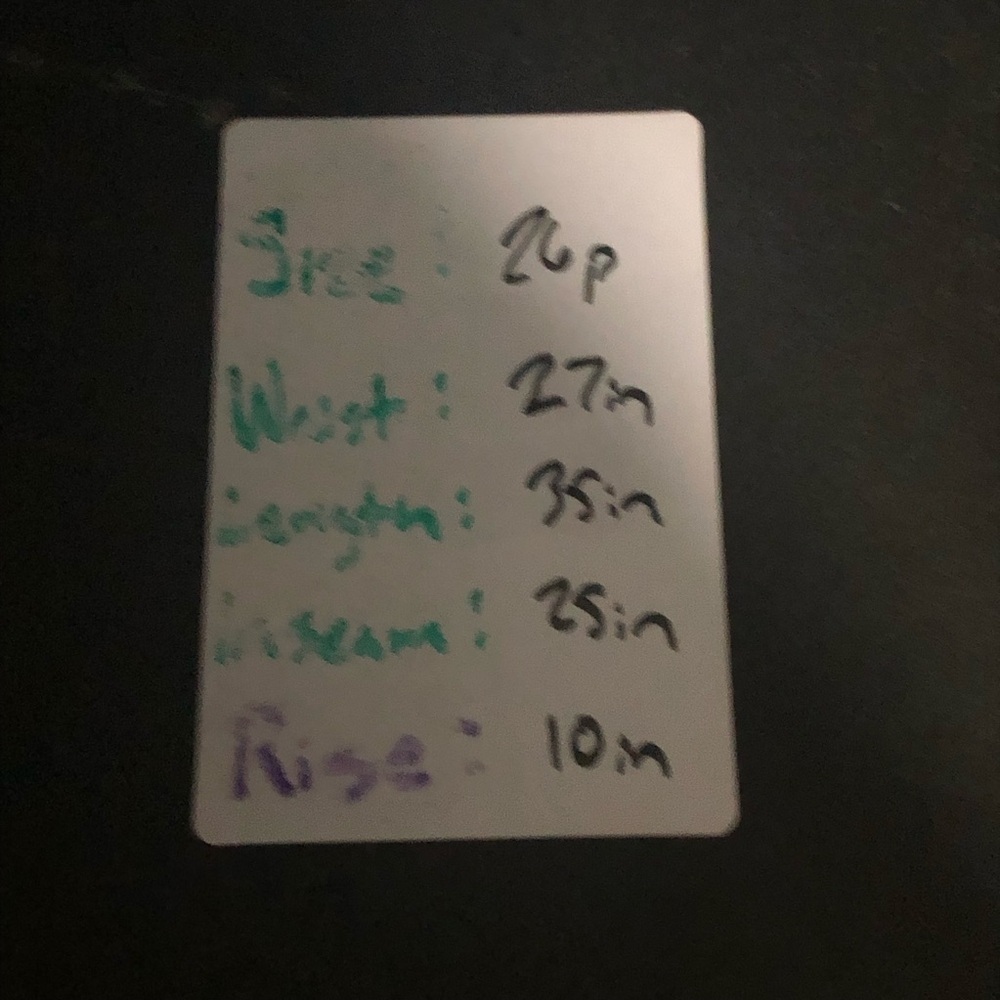 Size: 26p
Waist: 27in
Length: 35in
Inseam: 25in
Rise: 10in